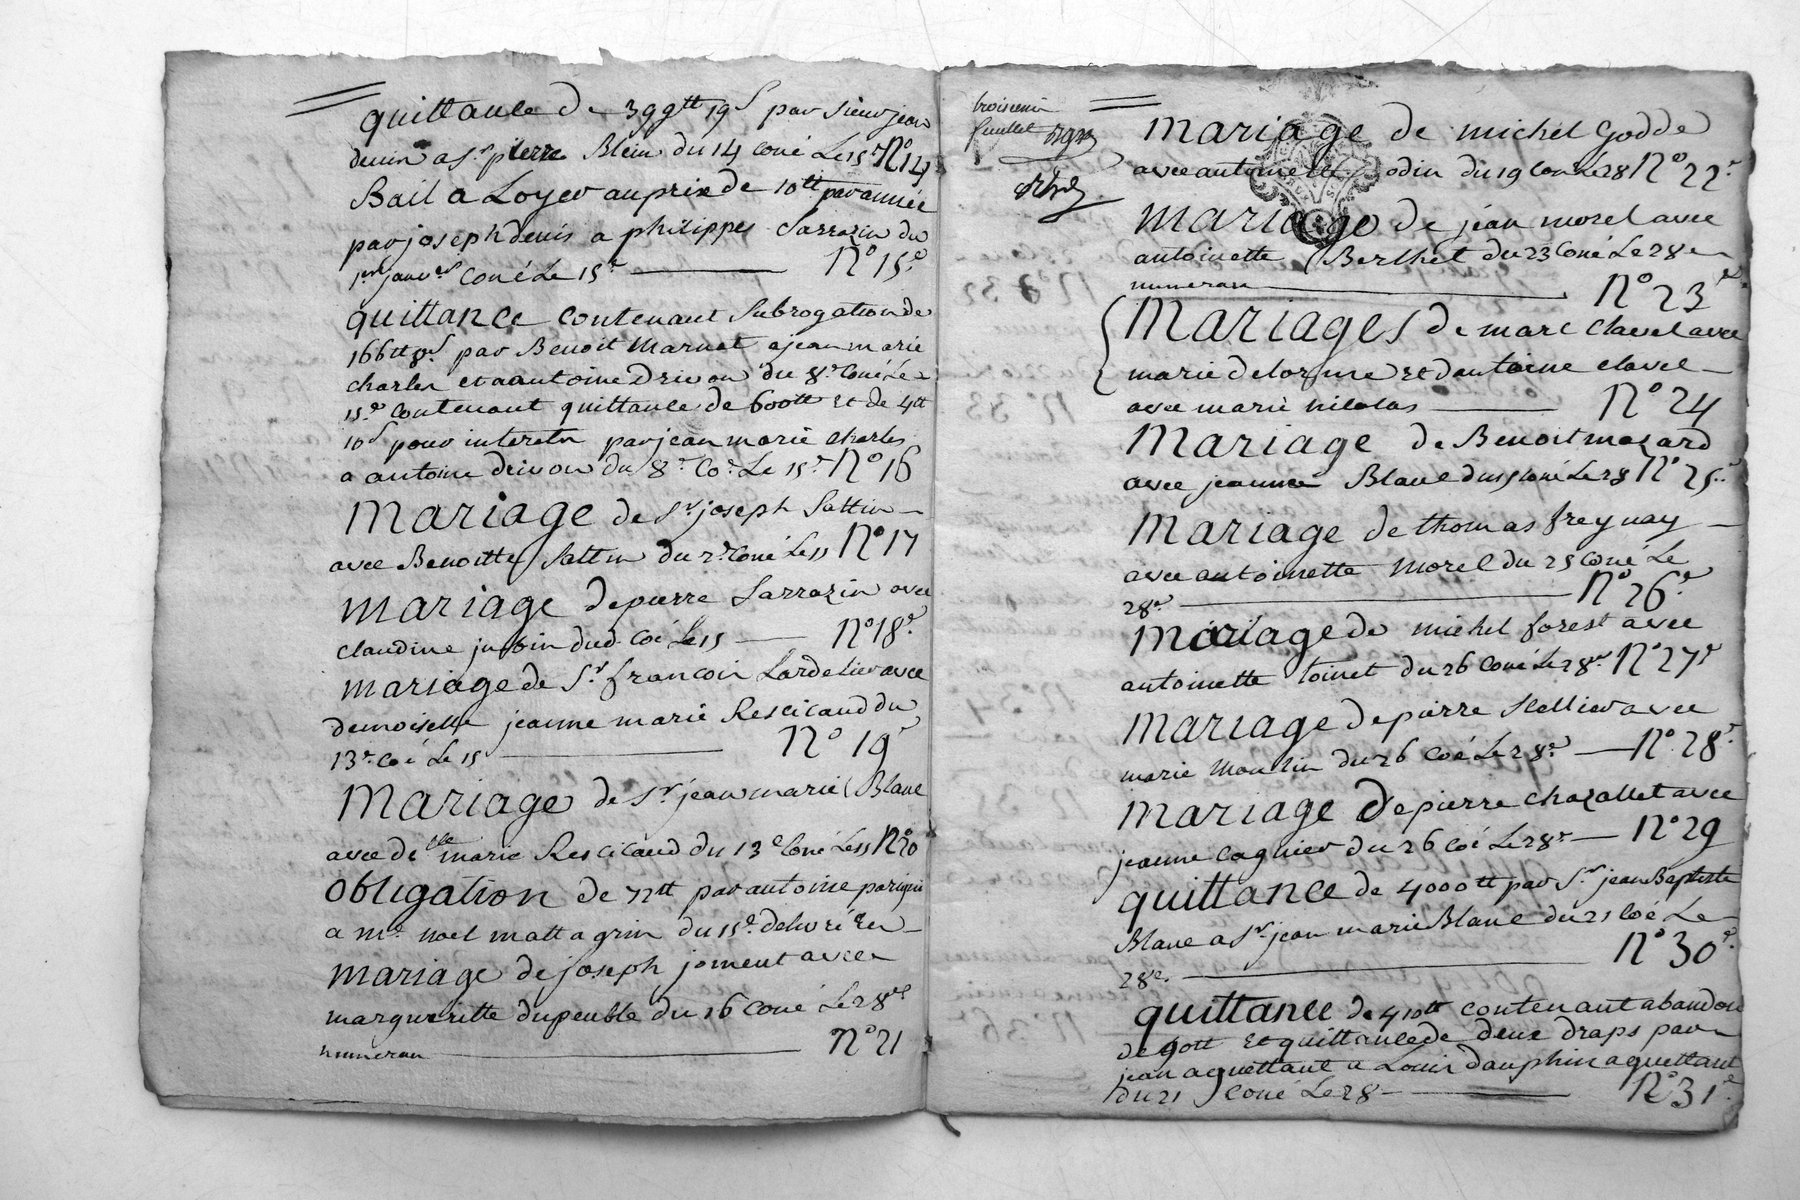 quittance de 399tt 19s par sieur jean
denis a sr pierre Blein du 14 coné Le 15e No 14
Bail a Loyer au prix de 10tt par année
par joseph denis a philippes Sarrazin du
1er janver coné Le 15e No 15e
quittance contenant Subrogation de
166tt 8s par Benoit Marnat a jean marie
charles et a antoine drivon du 8e coné Le
15e contenant quittance de 600tt Et de 4tt
10s pour interetn par jean marie charles
a antoine drivon du 8e Co.e Le 15e No 16
Mariage de Sr joseph Sattin
avec Benoitte Sattin du 2e coné Le 15 No 17
Mariage de pierre Sarrazin avec
claudine jusbin dud. Coé Le 15 No 18e
Mariage de Sr francois Lardelier avec
demoiselle jeanne marie Rescicaud du
13e Coé Le 15 No 19e
Mariage de Sr jean marie Blanc
avec delle marie Rescicaud du 13e Coné Le 15 No 20
Obligation de 72tt par antoine
a me noel mattagrin du 15e delivré En
Mariage de joseph joment avec
margueritte dupeuble du 16 coné Le 28e
numeran No 21
troisieme
feuillet
Mariage de michel godde
avec antoinette odin du 19 con Le 28 No 22e
Mariage de jean morel avec
antoinette Berthet du 23 Coné Le 28e
numeran No 23e
Mariages de marc Clavel avec
marie delorme Et d'antoine clavel
avec marie nicolas No 24
Mariage de Benoit mazard
avec jeanne Blanc du 15 coné Le 28 No 25e
Mariage de thomas freynay
avec antoinette morel du 25 Coné Le
28e No 26e
Mariage de michel forest avec
antoinette toinet du 26 coné Le 28e No 27e
Mariage de pierre Stellier avec
marie moulin du 26 coé Le 28e No 28e
Mariage de pierre chazallet avec
jeanne cagnier du 26 Coé Le 28e No 29
quittance de 4000tt par Sr jean Baptiste
Blanc a Sr jean marie Blanc du 21 Coé Le
28e No 30e
quittance de 410tt contenant abandon
de 90tt Et quittance de deux draps par
jean aguettant a Louis dauphin aguettant
du 21 Coné Le 28 No 31e